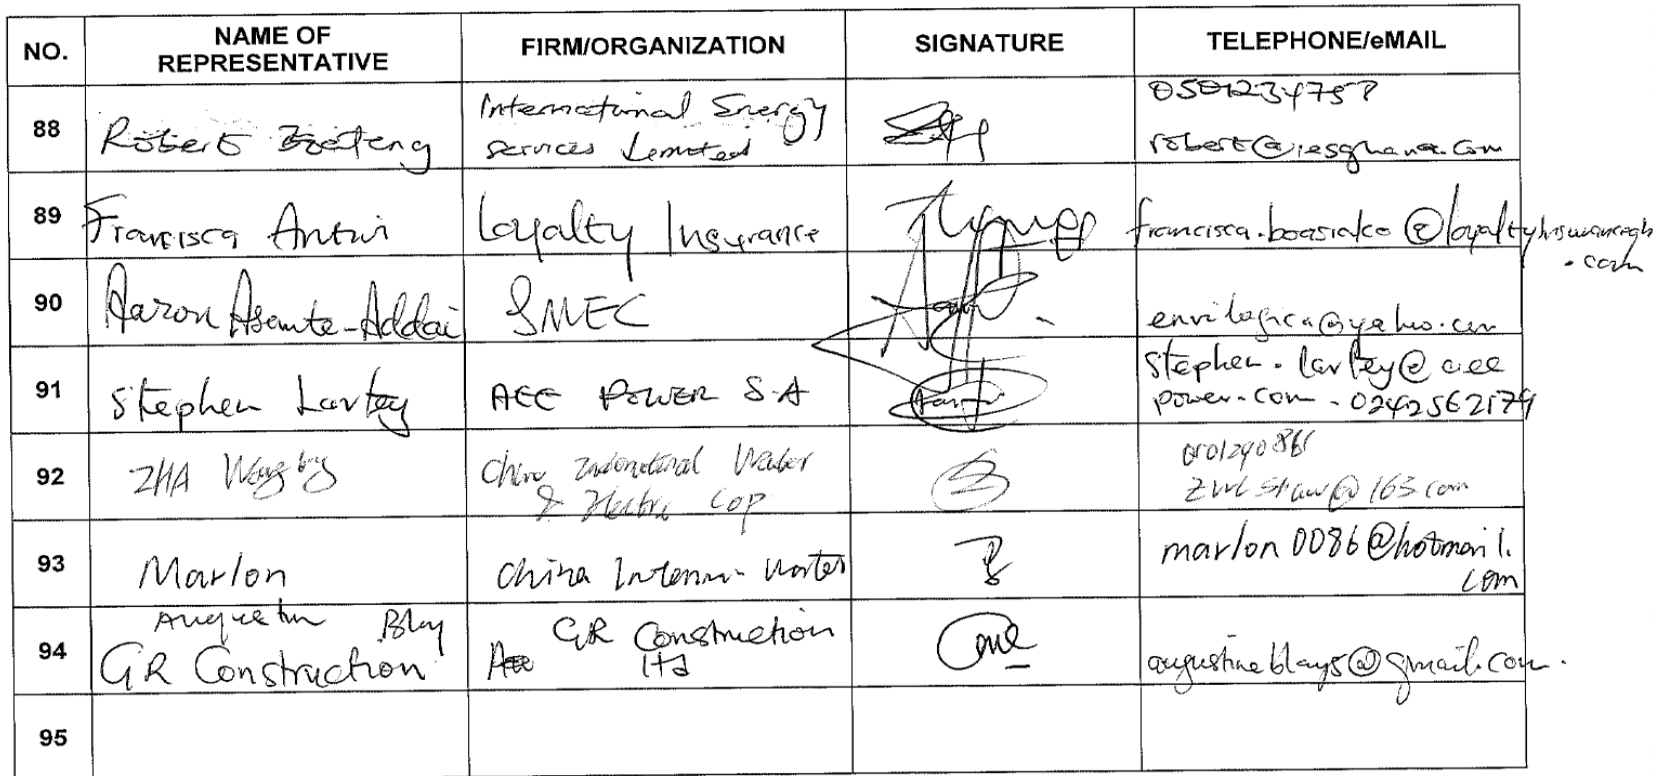 NO. NAME OF REPRESENTATIVE FIRM/ORGANIZATION SIGNATURE TELEPHONE/eMAIL
88 Robert Boateng International Energy Services Limited
robert@iesghana.com
89 Francisca Antwi Loyalty Insurance francisca.boasiako@loyaltyinsurancegh
.com
90 Aaron Asante-Addai SMEC envilogica@yahoo.com
91 Stephen Lartey AEE POWER S.A stephen.lartey@aee
power.com - 0242562179
92 ZHA China International Water
& Electric Cop @163.com
93 Marlon China Water marlon0086@hotmail.
com
94 Augustine Blay GR Construction
GR Construction Ltd augustineblay5@gmail.com.
95